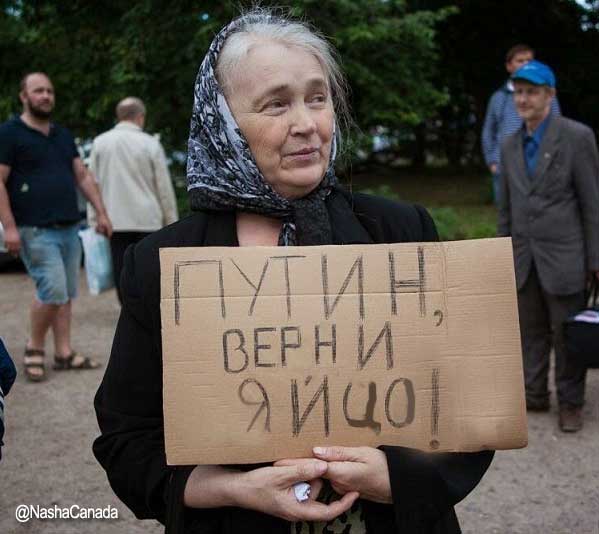 ПУТИН,
ВЕРНИ
ЯЙЦО!
@NashaCanada